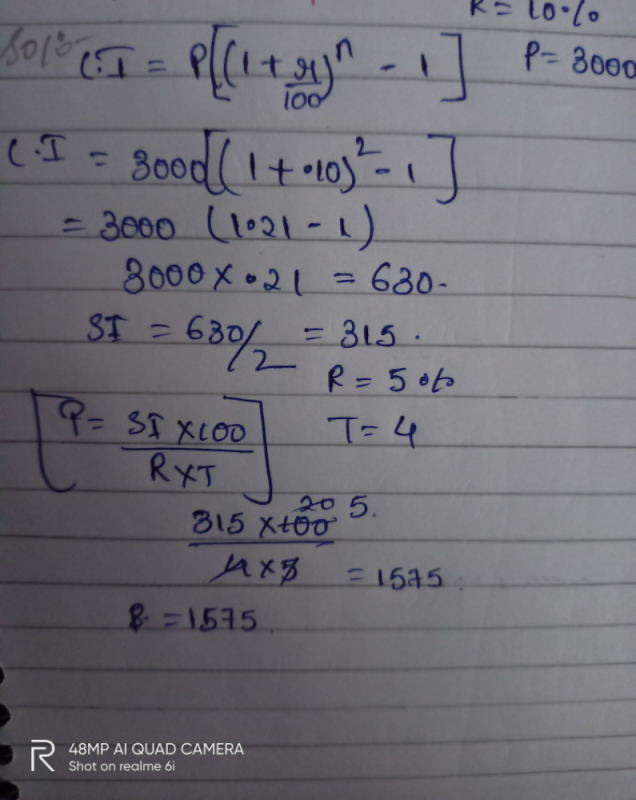 R = 10%
Soln:-
C.I = P[(1 + r/100)^n - 1]
P = 3000
C.I = 3000[(1 + .10)^2 - 1]
= 3000 (1.21 - 1)
3000 × .21 = 630.
SI = 630/2 = 315.
R = 5%
[P = SI × 100 / R × T]
T = 4
20 5.
315 × 100
4 × 5 = 1575.
= 1575
48MP AI QUAD CAMERA
Shot on realme 6i